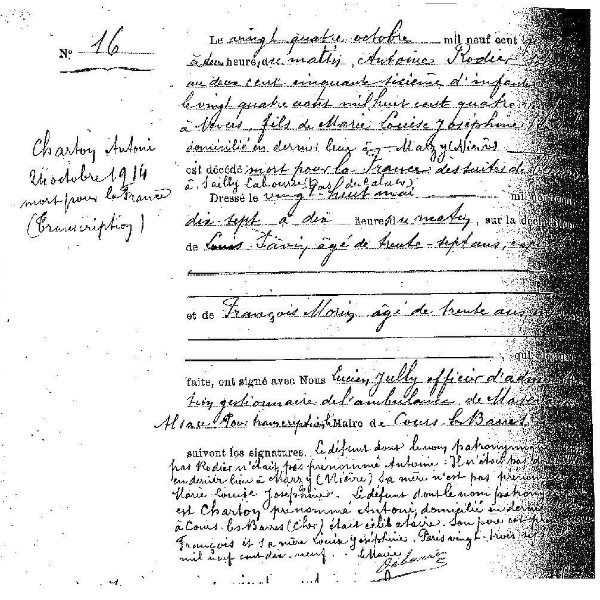 Nº 16
Le vingt quatre octobre mil neuf cent
à deux heures du matin, Antoine Rodier
au deux cent cinquante sixième d'infant
le vingt quatre août mil huit cent quatre
à fils de Marie Louise Joséphine
domicilié en dernier lieu à Marzy (Nièvre)
est décédé mort pour la France des suites de
à Sailly Labourse (Pas de Calais)
Dressé le vingt huit mai mil
dix sept à dix heures du matin, sur la décl
de âgé de trente sept ans,
et de François Morin âgé de trente ans
, qui
faite, ont signé avec Nous Lucien Jully officier d'admi
tion gestionnaire de l'ambulance
Pour transcription, le Maire de Cours les Barres
suivent les signatures. Le défunt dont le nom patronym
pas Rodier n'était pas prénommé Antoine. Il n'était pas
en dernier lieu à Marzy (Nièvre) sa mère n'est pas prénom
Marie Louise Joséphine. Le défunt dont le nom patron
est Charton prénommé Antoine, domicilié en dernier
à Cours-les-Barres (Cher) était célibataire. Son père est
François et sa mère Louise Joséphine. Paris vingt trois
mil neuf cent dix neuf. Le Maire
Charton Antoine
24 octobre 1914
mort pour la France
(Transcription)